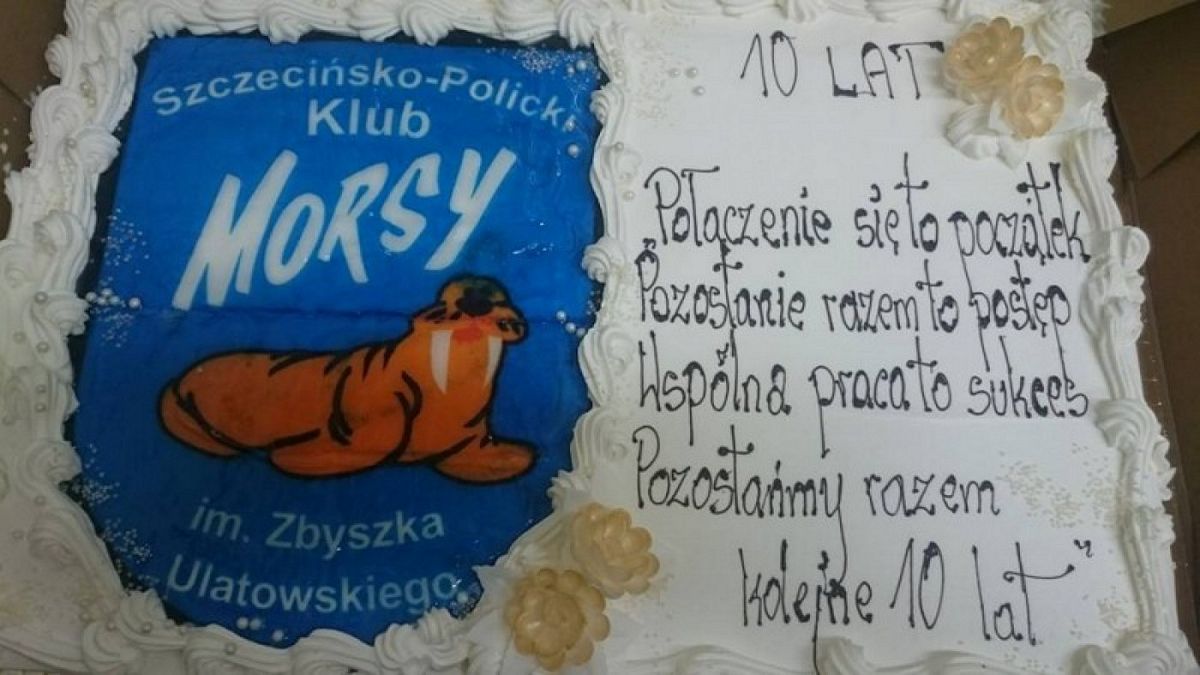 Szczecińsko-Policki
Klub
MORSY
im. Zbyszka
Ulatowskiego
10 LAT
"Połączenie się to początek
Pozostanie razem to postęp
Wspólna praca to sukces
Pozostańmy razem
kolejne 10 lat"